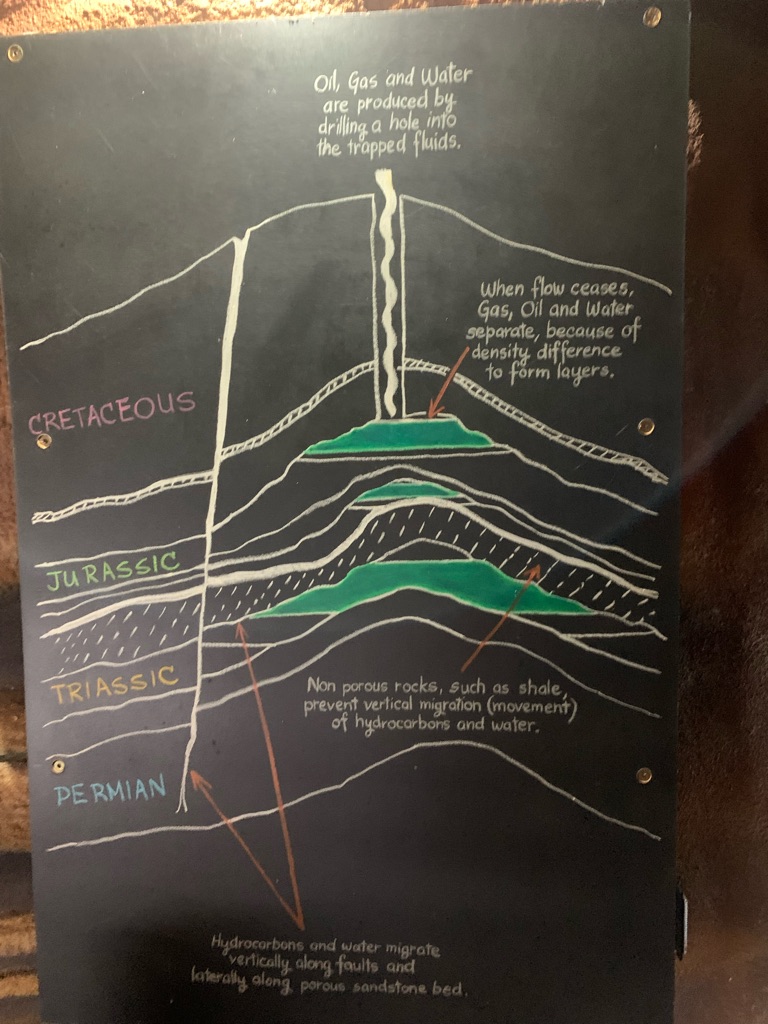 Oil, Gas and Water
are produced by
drilling a hole into
the trapped fluids.
When flow ceases,
Gas, Oil and Water
separate, because of
density difference
to form layers.
CRETACEOUS
JURASSIC
TRIASSIC
Non porous rocks, such as shale,
prevent vertical migration (movement)
of hydrocarbons and water.
PERMIAN
Hydrocarbons and water migrate
vertically along faults and
laterally along porous sandstone bed.